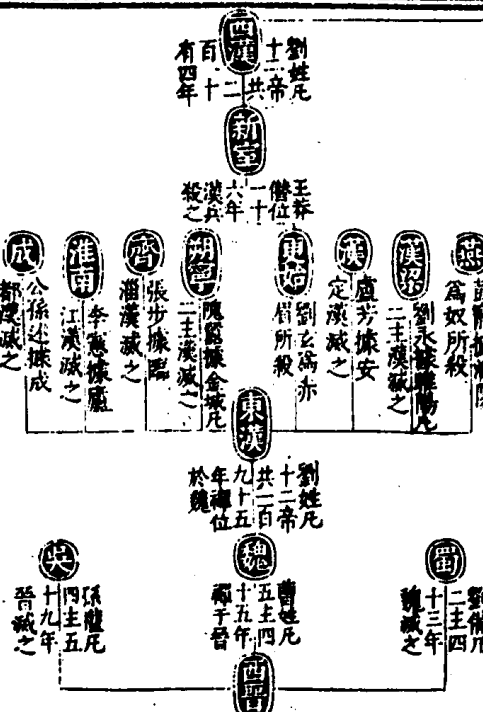 西漢
劉姓凡
十二帝
共
二
百十
有四年
新室
王莽
僭位
一十
六年
漢兵
殺之
燕
爲奴所殺
劉永據睢陽凡
二主漢滅之
漢
盧芳據安
定漢滅之
更始
劉玄爲赤
眉所殺
朔寧
隗囂據金城凡
二主漢滅之
齊
張步據臨
淄漢滅之
淮南
李憲據廬
江漢滅之
成
公孫述據成
都漢滅之
東漢
劉姓凡
十二帝
共一百
九十五
年禪位
於魏
蜀
劉備凡
二主四
十三年
魏滅之
魏
曹姓凡
五主四
十五年
禪于晉
吳
孫權凡
四主五
十九年
晉滅之
西晉